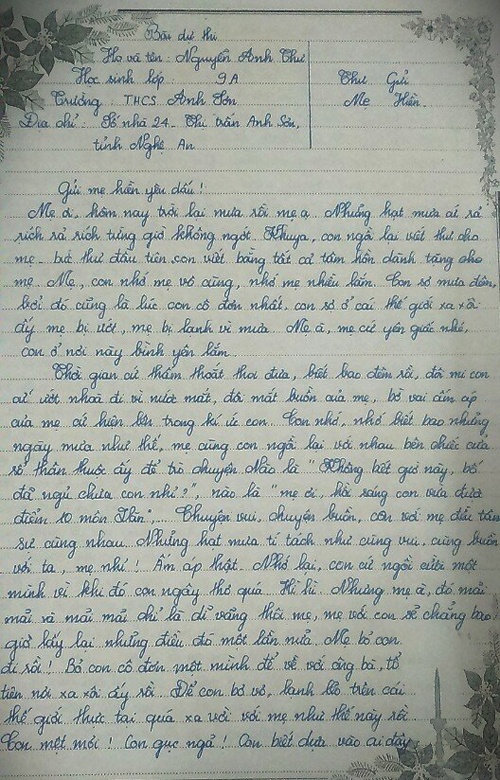 Bài dự thi
Họ và tên : Nguyễn Anh Thư
Học sinh lớp : 9A
Thư Gửi
Trường : THCS Anh Sơn
Mẹ Hiền.
Địa chỉ : Số nhà 24 - Thị trấn Anh Sơn,
tỉnh Nghệ An
Gửi mẹ hiền yêu dấu !
Mẹ ơi, hôm nay trời lại mưa rồi mẹ ạ. Những hạt mưa cứ rả
rích rả rích từng giờ không ngớt. Khuya, con ngồi lại viết thư cho
mẹ - bức thư đầu tiên con viết bằng tất cả tâm hồn dành tặng cho
mẹ. Mẹ, con nhớ mẹ vô cùng, nhớ mẹ nhiều lắm. Con sợ mưa đêm,
bởi đó cũng là lúc con cô đơn nhất, con sợ ở cái thế giới xa xôi
ấy mẹ bị ướt, mẹ bị lạnh vì mưa. Mẹ à, mẹ cứ yên giấc nhé,
con ở nơi này bình yên lắm.
Thời gian cứ thấm thoát thoi đưa, biết bao đêm rồi, đôi mi con
cứ ướt nhoà đi vì nước mắt, đôi mắt buồn của mẹ, bờ vai ấm áp
của mẹ cứ hiện lên trong kí ức con. Con nhớ, nhớ biết bao những
ngày mưa như thế, mẹ cùng con ngồi lại với nhau bên chiếc cửa
sổ thân thuộc ấy để trò chuyện. Nào là " Không biết giờ này, bố
đã ngủ chưa con nhỉ ? ", nào là " mẹ ơi, hồi sáng con vừa được
điểm 10 môn Văn ",... Chuyện vui, chuyện buồn, con với mẹ đều tâm
sự cùng nhau. Những hạt mưa tí tách như cùng vui, cùng buồn
với ta, mẹ nhỉ ! Ấm áp thật. Nhớ lại, con cứ ngồi cười một
mình vì khi đó con ngây thơ quá. Hì hì. Nhưng mẹ à, đó mãi
mãi và mãi mãi chỉ là dĩ vãng thôi mẹ, mẹ với con sẽ chẳng bao
giờ lấy lại những điều đó một lần nữa. Mẹ bỏ con
đi rồi ! Bỏ con cô đơn một mình để về với ông bà, tổ
tiên nơi xa xôi ấy rồi. Để con bơ vơ, lạnh lẽo trên cái
thế giới thực tại quá xa vời với mẹ như thế này rồi.
Con mệt mỏi ! Con gục ngã ! Con biết dựa vào ai đây